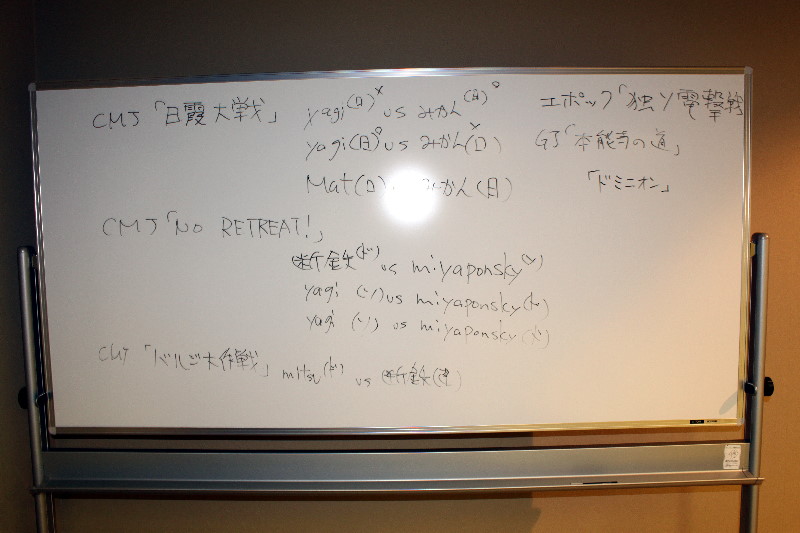 CMJ「日露大戦」 yagi(日)× vs みかん(日)○
yagi(日)○ vs みかん(ロ)×
Mat(ロ) みかん(日)
エポック「独ソ電撃戦
GJ「本能寺の道」
「ドミニオン」
CMJ「NO RETREAT!」
断鉄(ド) vs miyaponsky(ソ)
yagi (ソ) vs miyaponsky(ド)
yagi (ソ) vs miyaponsky(ド)
CMJ「バルジ大作戦」 mitsu(ド) vs 断鉄(連)